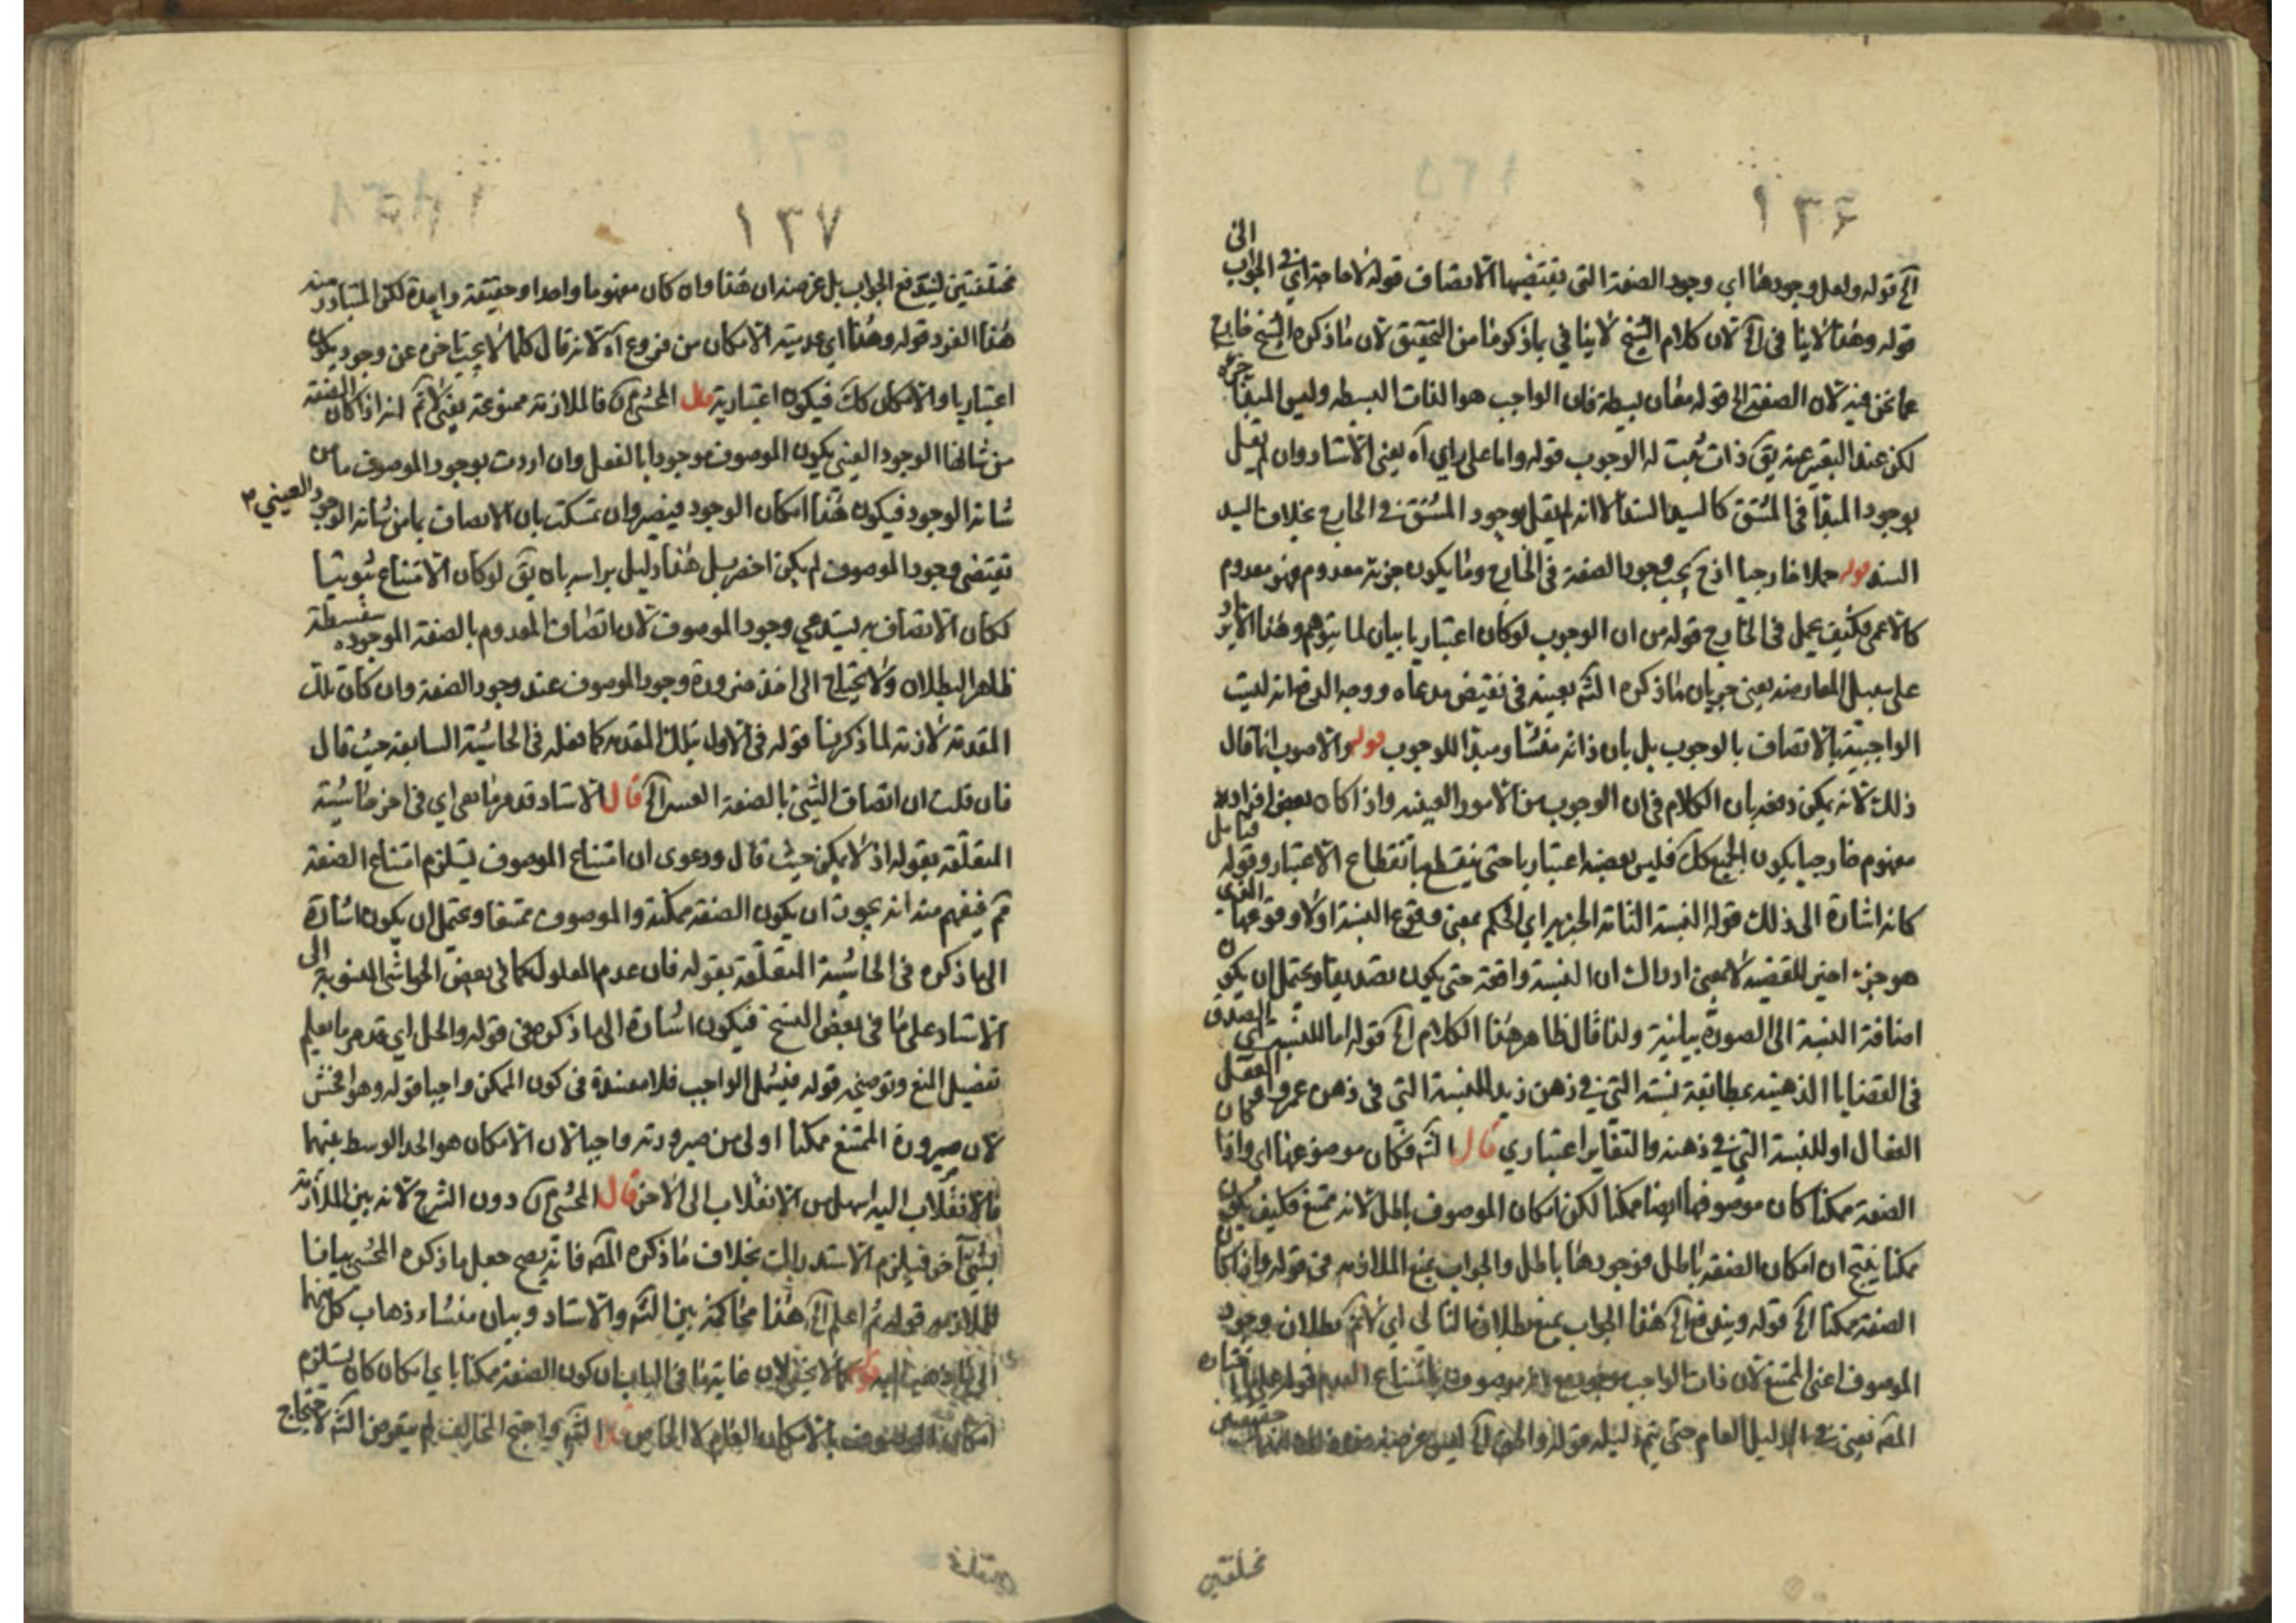 ١٣٦
الخ قوله ولعل وجودها اي وجود الصفة التي يقتضيها الاتصاف قوله لا حاجة اي في الجواب الى
قوله وهذا لا ينافي الخ لان كلام الشيخ لا ينافي ما ذكرنا من التحقيق لان ما ذكره الشيخ خارج
عما نحن فيه لان الصفة الى قوله معان بسيطة فان الواجب هو الذات البسيطة وليس المبدأ جزءه
لكن عند التعبير عنه يق ذات ثبت له الوجوب قوله واما على راي اه يعني الاستاد وان لم يقل
بوجود المبدأ في المشتق الا انه لم يقل بوجود المشتق في الخارج بخلاف السيد
السند قوله حملا خارجيا اذ ح يجب وجود الصفة في الخارج وما يكون جزئه معدوم فهو معدوم
كالاعمى فكيف يحمل في الخارج قوله من ان الوجوب لوكان اعتباريا بيان لما يتوهم وهذا الايراد
على سبيل المعارضه يعني جريان ما ذكره الشه بعينه في نقيض مدعاه ووجه الدفع انه ليست
الواجبية بالاتصاف بالوجوب بل بان ذاته منشا ومبدأ للوجوب قوله والاصوب انما قال
ذلك لانه يمكن دفعه بان الكلام في ان الوجوب من الامور العينيه واذا كان بعض افراد
مفهوم خارجيا يكون الجميع كك فليس بعضه اعتباريا حتى ينقطع بانقطاع الاعتبار وقوله فتامل
كانه اشارة الى ذلك قوله النسبة التامة الخبريه اي الحكم بمعنى وقوع النسبة اولا وقوعها الذي
هو جزء اخير للقضيه لا بمعنى ادراك ان النسبة واقعة حتى يكون تصديقا ويحتمل ان يكون
اضافة النسبة الى الصورة بيانية ولذا قال ظاهر هذا الكلام الخ قوله اما للنسبة اي الصدق
في القضايا الذهنيه بمطابقة نسبته التي في ذهن زيد للنسبة التي في ذهن عمرو او العقل
الفعال او للنسبة التي في ذهنه والتغاير اعتباري قال الشه فكان موصوفها اي واذا كان
الصفة ممكنا كان موصوفها ايضا ممكنا لكن امكان الموصوف باطل لانه ممتنع فكيف يكون
ممكنا ينتج ان امكان الصفة باطل فوجودها باطل والجواب بمنع الملازمه في قوله واذا كان
الصفة ممكنا الخ قوله ويندفع الخ هذا الجواب بمنع بطلان التالي اي لانم بطلان وجود
الموصوف اعني الممتنع لان ذات الواجب موجود مع انه موصوف بامتناع العدم قوله
المص يعني في الدليل العام حتى يتم دليله قوله والحق الخ ليس غرضه حقيقتين
مختلفتين
١٣٧
مختلفتين ليندفع الجواب بل غرضه ان هذا وان كان مفهوما واحدا وحقيقة واحدة لكن المتبادر منه
هذا الفرد قوله وهذا اي عدمية الامكان من فروع اه لانه قال كلما لا يجب تاخره عن وجود يكون
اعتباريا والامكان كك فيكون اعتبارية قال المحشي ره فالملازمة ممنوعة يعني لانم انه اذا كان الصفة
من شانها الوجود العيني يكون الموصوف موجودا بالفعل وان اردت بوجود الموصوف ما من
شانه الوجود فيكون هذا امكان الوجود فيضر وان تمسكت بان الاتصاف بما من شانه الوجود العيني
يقتضي وجود الموصوف لم يكن اخصر بل هذا دليل براسه بان يق لوكان الامتناع ثبوتيا
لكان الاتصاف به يستدعي وجود الموصوف لان اتصاف المعدوم بالصفة الموجوده سفسطة
ظاهر البطلان ولا يحتاج الى اخذ ضرورة وجود الموصوف عند وجود الصفة وان كان تلك
المقدمة لازمة لما ذكرنا قوله في الاول بتلك المقدمه كما نقله في الحاشية السابقة حيث قال
فان قلت ان اتصاف الشيء بالصفة الخ قال الاستاد قد مر ما معي اي في اخر حاشية
المتعلقة بقوله اذ لا يمكن حيث قال ودعوى ان امتناع الموصوف يستلزم امتناع الصفة
ثم فيفهم منه انه يجوز ان يكون الصفة ممكنة والموصوف ممتنعا ويحتمل ان يكون اشارة
الى ما ذكره في الحاشية المتعلقة بقوله فان عدم المعلول كما في بعض الحواشي المنسوبة الى
الاستاد على ما في بعض النسخ فيكون اشارة الى ما ذكره في قوله والحل اي قد مر ما يعلم
تفصيل المنع وتوضيحه قوله فيشمل الواجب فلا مفسدة في كون الممكن واجبا قوله وهو افحش
لان صيرورة الممتنع ممكنا اولى من صيرورته واجبا لان الامكان هو الحد الوسط بينهما
فالانقلاب اليه اسهل من الانقلاب الى الاخر قال المحشي ره دون الشرح لانه بين الملازمة
بشيء اخر فيلزم الاستدراك بخلاف ما ذكره المص فانه يصح جعل ما ذكره المحشي بيانا
للملازمه قوله ثم اعلم الخ هذا محاكمة بين الشه والاستاد وبيان منشاء ذهاب كل منهما
الى ما ذهب اليه قوله كما لا يخفى لان غاية ما في الباب ان كون الصفة ممكنا باي امكان كان يستلزم
امكان الموصوف بالامكان العام لا الخاص قال الشه واحتج المخالف لم يتعرض الشه لاحتجاج